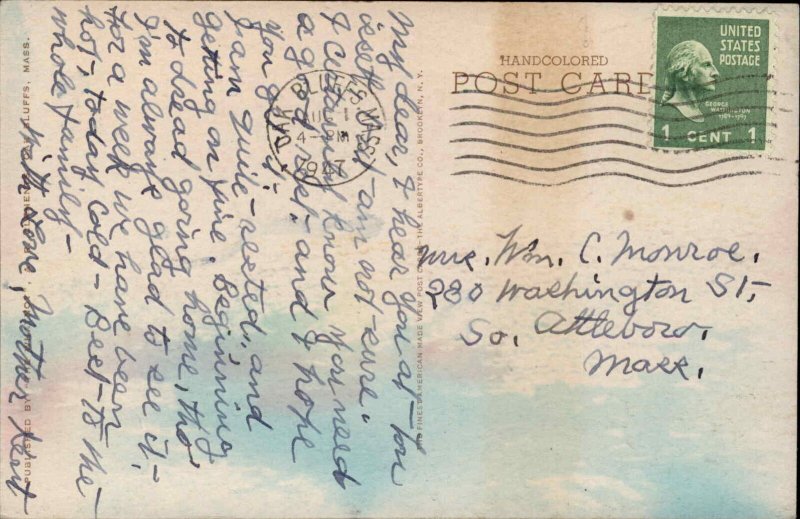 My dear, I hear you at Tom
isset - am not sure.
I certainly know you need
a good rest - and I hope
you get it.
I am quite rested, and
getting on fine. Beginning
to dread going home, tho'
I'm always glad to see it,
for a week we have been
hot, today cold - Best to the
whole family -
with love, Mother Kent
PUBLISHED BY
BLUFFS, MASS.
THE ALBERTYPE CO., BROOKLYN, N.Y.
HANDCOLORED
POST CARD
OAK BLUFFS MASS.
AUG 1
4 - PM
1947
UNITED
STATES
POSTAGE
GEORGE
WASHINGTON
1789-1797
1 CENT 1
Mrs. Wm. C. Monroe.
280 Washington St.,
So. Attleboro,
Mass.